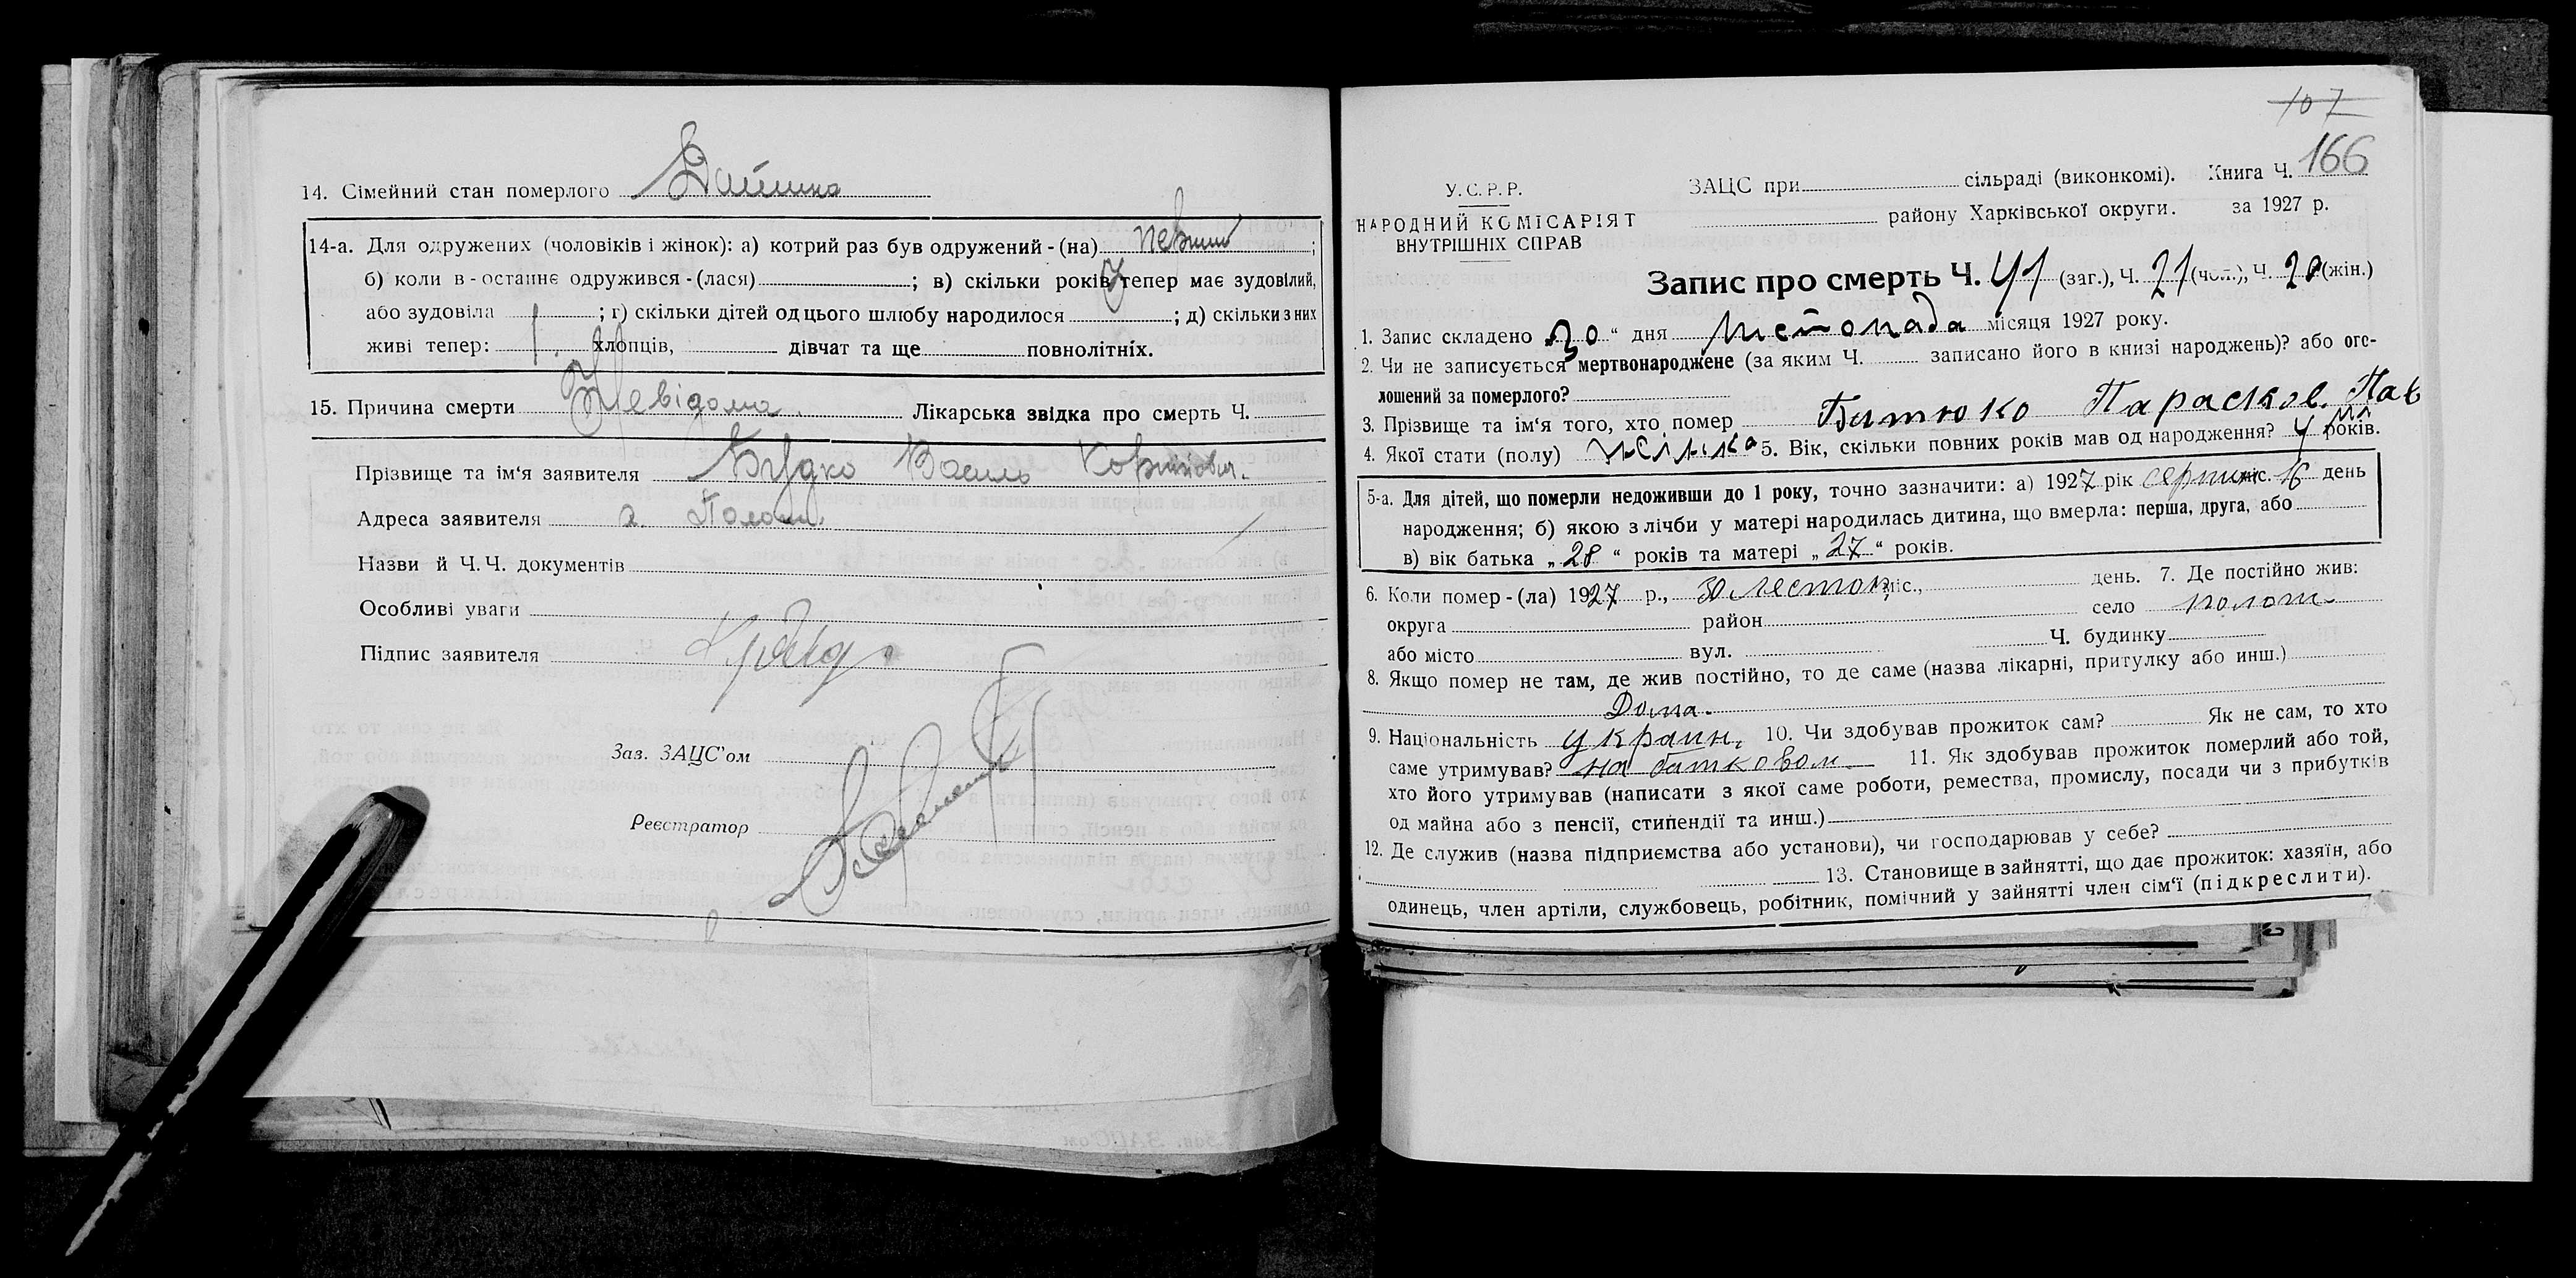 14. Сімейний стан померлого
14-а. Для одружених (чоловіків і жінок): а) котрий раз був одружений-(на) первий;
б) коли в-останнє одружився-(лася) ; в) скільки років тепер має зудовілий,
або зудовіла ; г) скільки дітей од цього шлюбу народилося ; д) скільки з них
живі тепер: 1 хлопців, дівчат та ще повнолітніх.
15. Причина смерти Невідома. Лікарська звідка про смерть Ч.
Прізвище та ім'я заявителя Василь
Адреса заявителя
Назви й Ч.Ч. документів
Особливі уваги
Підпис заявителя
Зав. ЗАЦС'ом
Реєстратор
107
У.С.Р.Р.
НАРОДНИЙ КОМІСАРІЯТ
ВНУТРІШНІХ СПРАВ
ЗАЦС при сільраді (виконкомі). Книга Ч. 166
району Харківської округи. за 1927 р.
Запис про смерть Ч. 41 (заг.), Ч. 21 (чол.), Ч. 20 (жін.)
1. Запис складено „30“ дня листопада місяця 1927 року.
2. Чи не записується мертвонароджене (за яким Ч. записано його в книзі народжень)? або ого-
лошений за померлого?
3. Прізвище та ім'я того, хто помер Парасков. Пав
4. Якої стати (полу) жінка 5. Вік, скільки повних років мав од народження? 4 років.
5-а. Для дітей, що померли недоживши до 1 року, точно зазначити: а) 1927 рік серпня міс. 16 день
народження; б) якою з лічби у матері народилась дитина, що вмерла: перша, друга, або
в) вік батька „28“ років та матері „27“ років.
6. Коли помер-(ла) 1927 р., 30 листоп міс., день. 7. Де постійно жив:
округа район село
або місто вул. Ч. будинку
8. Якщо помер не там, де жив постійно, то де саме (назва лікарні, притулку або инш.)
Дома.
9. Національність україн. 10. Чи здобував прожиток сам? Як не сам, то хто
саме утримував? на батковом 11. Як здобував прожиток померлий або той,
хто його утримував (написати з якої саме роботи, ремества, промислу, посади чи з прибутків
од майна або з пенсії, стипендії та инш.)
12. Де служив (назва підприємства або установи), чи господарював у себе?
13. Становище в зайнятті, що дає прожиток: хазяїн, або
одинець, член артіли, службовець, робітник, помічний у зайнятті член сім'ї (підкреслити).